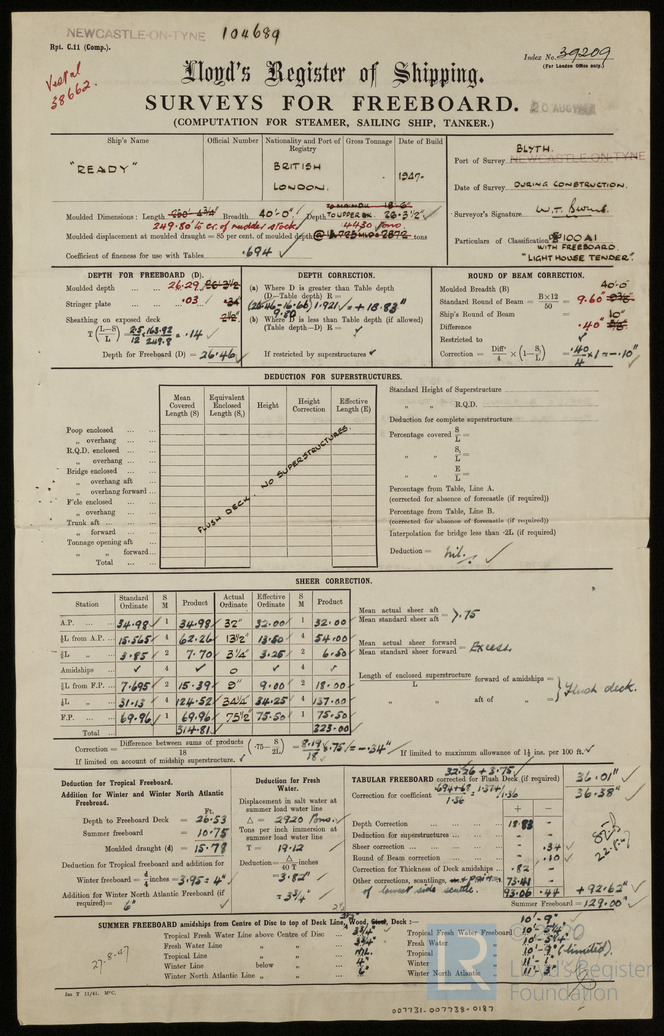 NEWCASTLE-ON-TYNE 104689
Rpt. C.11 (Comp.).
Index No. 39209
(For London Office only.)
Vestal
38662.
Lloyd's Register of Shipping.
SURVEYS FOR FREEBOARD.
(COMPUTATION FOR STEAMER, SAILING SHIP, TANKER.)
Ship's Name Official Number Nationality and Port of Registry Gross Tonnage Date of Build
"READY" BRITISH LONDON. 1947.
BLYTH.
Port of Survey NEWCASTLE-ON-TYNE
Date of Survey DURING CONSTRUCTION.
Surveyor's Signature
Particulars of Classification 100A1
WITH FREEBOARD.
"LIGHT HOUSE TENDER".
Moulded Dimensions: Length Breadth 40'-0" Depth TO UPPER DK. 26-3½"
249.80' to cr. of rudder stock
4430 tons.
Moulded displacement at moulded draught = 85 per cent. of moulded depth tons
Coefficient of fineness for use with Tables .694
DEPTH FOR FREEBOARD (D).
Moulded depth 26.29
Stringer plate .03
Sheathing on exposed deck 2½"
T (L—S/L) = 2.5/12 × 163.92/249.8 = .14
Depth for Freeboard (D) = 26.46
DEPTH CORRECTION.
(a) Where D is greater than Table depth
(D—Table depth) R =
(26.46-16.66) 1.921 = + 18.83"
9.80
(b) Where D is less than Table depth (if allowed)
(Table depth—D) R =
If restricted by superstructures
ROUND OF BEAM CORRECTION.
Moulded Breadth (B) 40.0
Standard Round of Beam = B×12/50 = 9.60"
Ship's Round of Beam = 10"
Difference .40"
Restricted to
Correction = Diffce/4 × (1—S₁/L) = .40/4 × 1 = -.10"
DEDUCTION FOR SUPERSTRUCTURES.
Mean Covered Length (S) Equivalent Enclosed Length (S₁) Height Height Correction Effective Length (E)
Poop enclosed
„ overhang
R.Q.D. enclosed
„ overhang
Bridge enclosed
„ overhang aft
„ overhang forward
F'cle enclosed
„ overhang
Trunk aft
„ forward
Tonnage opening aft
„ „ forward
Total
FLUSH DECK. NO SUPERSTRUCTURES.
Standard Height of Superstructure
„ „ R.Q.D.
Deduction for complete superstructure
Percentage covered S/L =
„ „ S₁/L =
„ „ E/L =
Percentage from Table, Line A.
(corrected for absence of forecastle (if required))
Percentage from Table, Line B.
(corrected for absence of forecastle (if required))
Interpolation for bridge less than ·2L (if required)
Deduction = Nil.
SHEER CORRECTION.
Station Standard Ordinate S M Product Actual Ordinate Effective Ordinate S M Product
A.P. 34.98 1 34.98 32" 32.00 1 32.00
⅙L from A.P. 15.565 4 62.26 13½" 13.50 4 54.00
⅓L „ 3.85 2 7.70 3¼" 3.25 2 6.50
Amidships 4 0 4
⅓L from F.P. 7.695 2 15.39 9" 9.00 2 18.00
⅙L „ 31.13 4 124.52 34¼ 34.25 4 137.00
F.P. 69.96 1 69.96 75½" 75.50 1 75.50
Total 314.81 323.00
Mean actual sheer aft
Mean standard sheer aft = >.75
Mean actual sheer forward
Mean standard sheer forward = Excess.
Length of enclosed superstructure forward of amidships =
L
„ aft of „ =
Flush deck.
Correction = Difference between sums of products/18 (·75—S/2L) = 8.19/18 × .75 = -.34"
If limited on account of midship superstructure.
If limited to maximum allowance of 1½ ins. per 100 ft.
Deduction for Tropical Freeboard.
Addition for Winter and Winter North Atlantic Freeboard.
Ft.
Depth to Freeboard Deck = 26.53
Summer freeboard = 10.75
Moulded draught (d) = 15.78
Deduction for Tropical freeboard and addition for
Winter freeboard = d/4 inches = 3.95 = 4"
Addition for Winter North Atlantic Freeboard (if required) = 6"
Deduction for Fresh Water.
Displacement in salt water at summer load water line
Δ = 2920 tons.
Tons per inch immersion at summer load water line
T = 19.12
Deduction = Δ/40 T inches
= 3.82"
= 3¾"
TABULAR FREEBOARD corrected for Flush Deck (if required)
32.26 + 3.75
36.01"
Correction for coefficient .694+.68/1.36 = 1.374/1.36 36.38"
+ −
Depth Correction 18.83 -
Deduction for superstructures - -
Sheer correction - .34
Round of Beam correction - .10
Correction for Thickness of Deck amidships .82 -
Other corrections, scantlings, 73.41 -
of lowest side scuttle. 93.06 .44 + 92.62"
Summer Freeboard = 129.00"
22.8.47
SUMMER FREEBOARD amidships from Centre of Disc to top of Deck Line, Wood, Steel, Deck:— 10'-9"
Tropical Fresh Water Line above Centre of Disc 3¾" Tropical Fresh Water Freeboard 10'-5¼"
Fresh Water Line „ „ 3¾" Fresh Water „ 10'-5¼"
Tropical Line „ „ NIL. Tropical „ 10'-9" (limited).
Winter Line below „ 4" Winter „ 11'-1"
Winter North Atlantic Line „ „ 6" Winter North Atlantic „ 11'-3"
27.8.47
LR
© 2020
Lloyd's Register
Foundation
007731-007738-0187